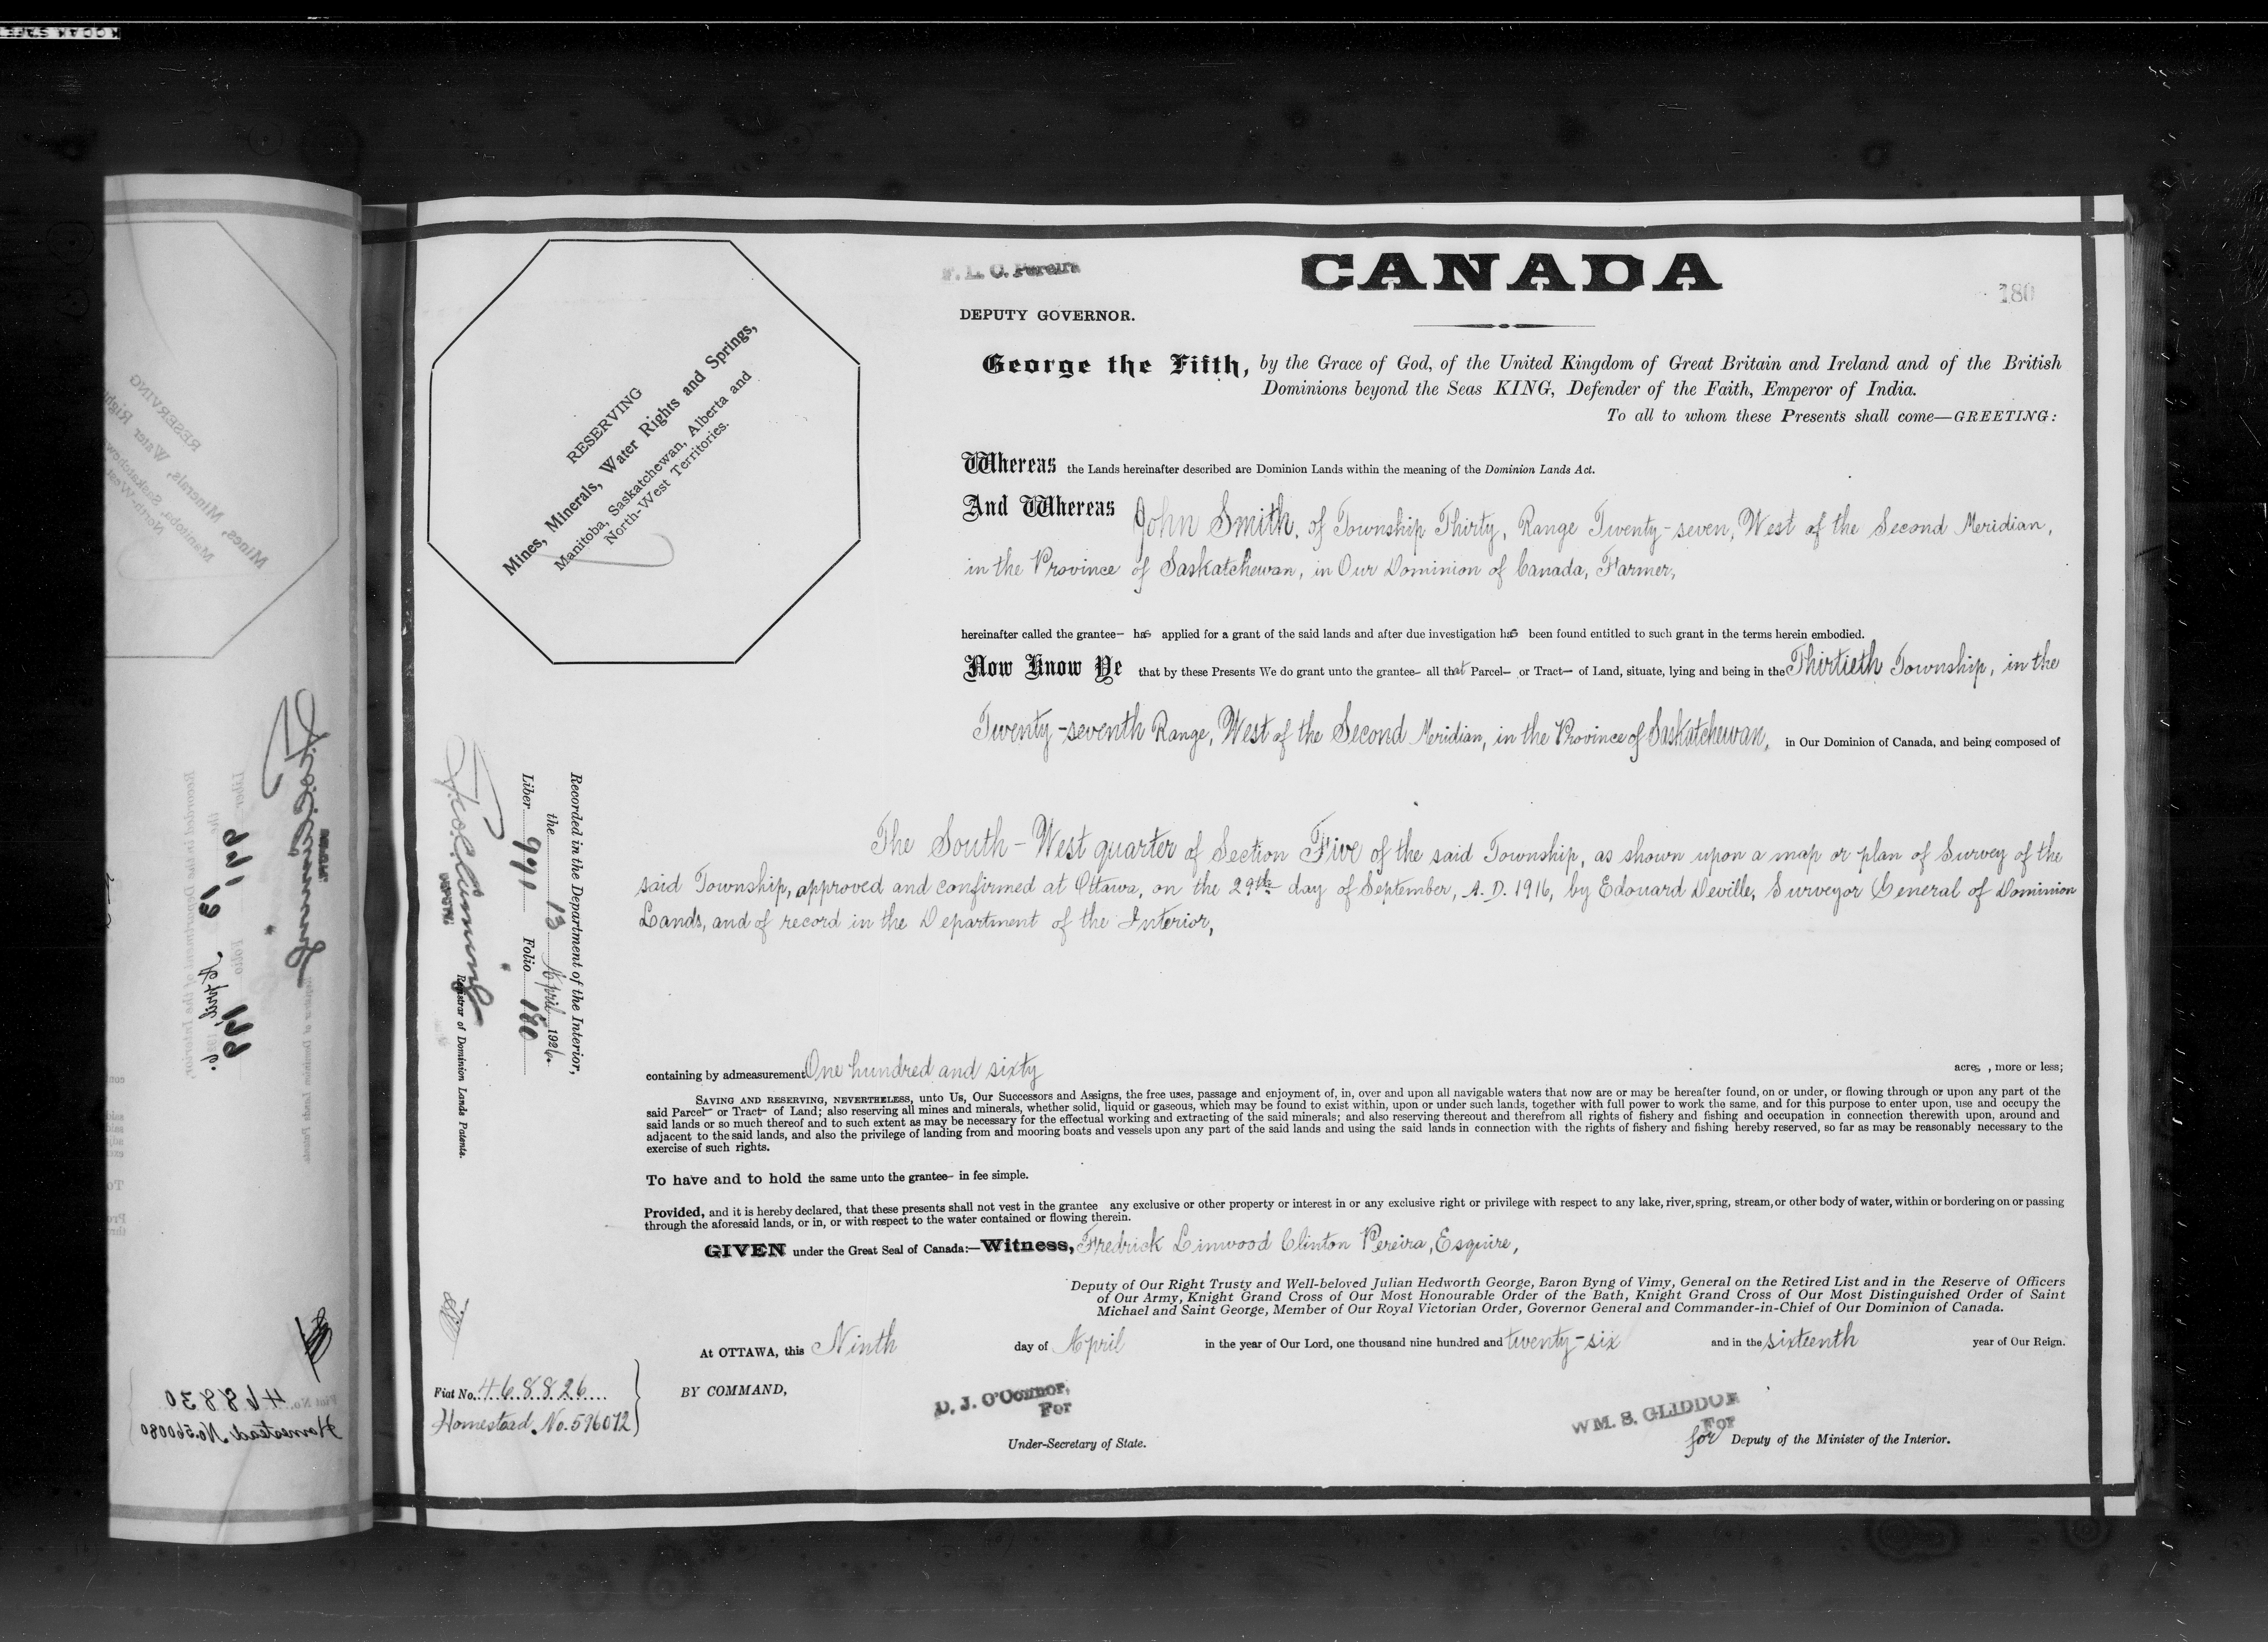 F. L. C. Pereira
CANADA
180
DEPUTY GOVERNOR.
George the Fifth, by the Grace of God, of the United Kingdom of Great Britain and Ireland and of the British
Dominions beyond the Seas KING, Defender of the Faith, Emperor of India.
To all to whom these Presents shall come—GREETING:
RESERVING
Mines, Minerals, Water Rights and Springs,
Manitoba, Saskatchewan, Alberta and
North-West Territories.
Whereas the Lands hereinafter described are Dominion Lands within the meaning of the Dominion Lands Act.
And Whereas John Smith, of Township Thirty, Range Twenty-seven, West of the Second Meridian,
in the Province of Saskatchewan, in Our Dominion of Canada, Farmer,
hereinafter called the grantee— has applied for a grant of the said lands and after due investigation has been found entitled to such grant in the terms herein embodied.
Now Know Ye that by these Presents We do grant unto the grantee— all that Parcel— or Tract— of Land, situate, lying and being in the Thirtieth Township, in the
Twenty-seventh Range, West of the Second Meridian, in the Province of Saskatchewan, in Our Dominion of Canada, and being composed of
The South-West quarter of Section Five of the said Township, as shown upon a map or plan of Survey of the
said Township, approved and confirmed at Ottawa, on the 29th day of September, A. D. 1916, by Edouard Deville, Surveyor General of Dominion
Lands, and of record in the Department of the Interior,
containing by admeasurement One hundred and sixty acres, more or less;
SAVING AND RESERVING, NEVERTHELESS, unto Us, Our Successors and Assigns, the free uses, passage and enjoyment of, in, over and upon all navigable waters that now are or may be hereafter found, on or under, or flowing through or upon any part of the
said Parcel— or Tract— of Land; also reserving all mines and minerals, whether solid, liquid or gaseous, which may be found to exist within, upon or under such lands, together with full power to work the same, and for this purpose to enter upon, use and occupy the
said lands or so much thereof and to such extent as may be necessary for the effectual working and extracting of the said minerals; and also reserving thereout and therefrom all rights of fishery and fishing and occupation in connection therewith upon, around and
adjacent to the said lands, and also the privilege of landing from and mooring boats and vessels upon any part of the said lands and using the said lands in connection with the rights of fishery and fishing hereby reserved, so far as may be reasonably necessary to the
exercise of such rights.
To have and to hold the same unto the grantee— in fee simple.
Provided, and it is hereby declared, that these presents shall not vest in the grantee any exclusive or other property or interest in or any exclusive right or privilege with respect to any lake, river, spring, stream, or other body of water, within or bordering on or passing
through the aforesaid lands, or in, or with respect to the water contained or flowing therein.
GIVEN under the Great Seal of Canada:—Witness, Fredrick Linwood Clinton Pereira, Esquire,
Deputy of Our Right Trusty and Well-beloved Julian Hedworth George, Baron Byng of Vimy, General on the Retired List and in the Reserve of Officers
of Our Army, Knight Grand Cross of Our Most Honourable Order of the Bath, Knight Grand Cross of Our Most Distinguished Order of Saint
Michael and Saint George, Member of Our Royal Victorian Order, Governor General and Commander-in-Chief of Our Dominion of Canada.
At OTTAWA, this Ninth day of April in the year of Our Lord, one thousand nine hundred and twenty-six and in the sixteenth year of Our Reign.
BY COMMAND,
D. J. O'Connor,
For
Under-Secretary of State.
WM. S. GLIDDON
For
for Deputy of the Minister of the Interior.
Recorded in the Department of the Interior,
the 13 April 1926.
Liber 991 Folio 180
Registrar of Dominion Lands Patents.
Fiat No. 468826
Homestead No. 596072
Fiat No. 468830
Homestead No. 560080